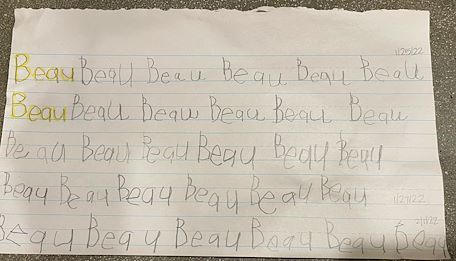 1/25/22
Beau Beau Beau Beau Beau Beau
Beau Beau Beau Beau Beau Beau
Beau Beau Beau Beau Beau Beau
Beau Beau Beau Beau Beau Beau 1/27/22
2/1/22
Beau Beau Beau Beau Beau Beau